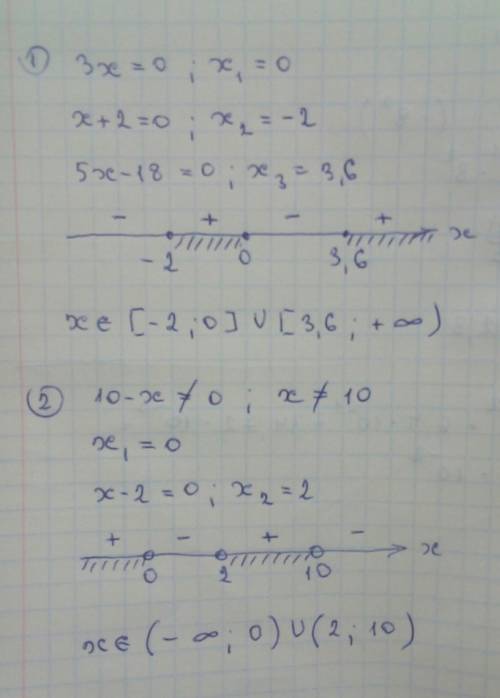 ① 3x = 0 ; x₁ = 0
x + 2 = 0 ; x₂ = -2
5x - 18 = 0 ; x₃ = 3,6
- + - +
-2 0 3,6 x
x ∈ [-2 ; 0] ∪ [3,6 ; +∞)
② 10 - x ≠ 0 ; x ≠ 10
x₁ = 0
x - 2 = 0 ; x₂ = 2
+ - + -
0 2 10 x
x ∈ (-∞ ; 0) ∪ (2 ; 10)